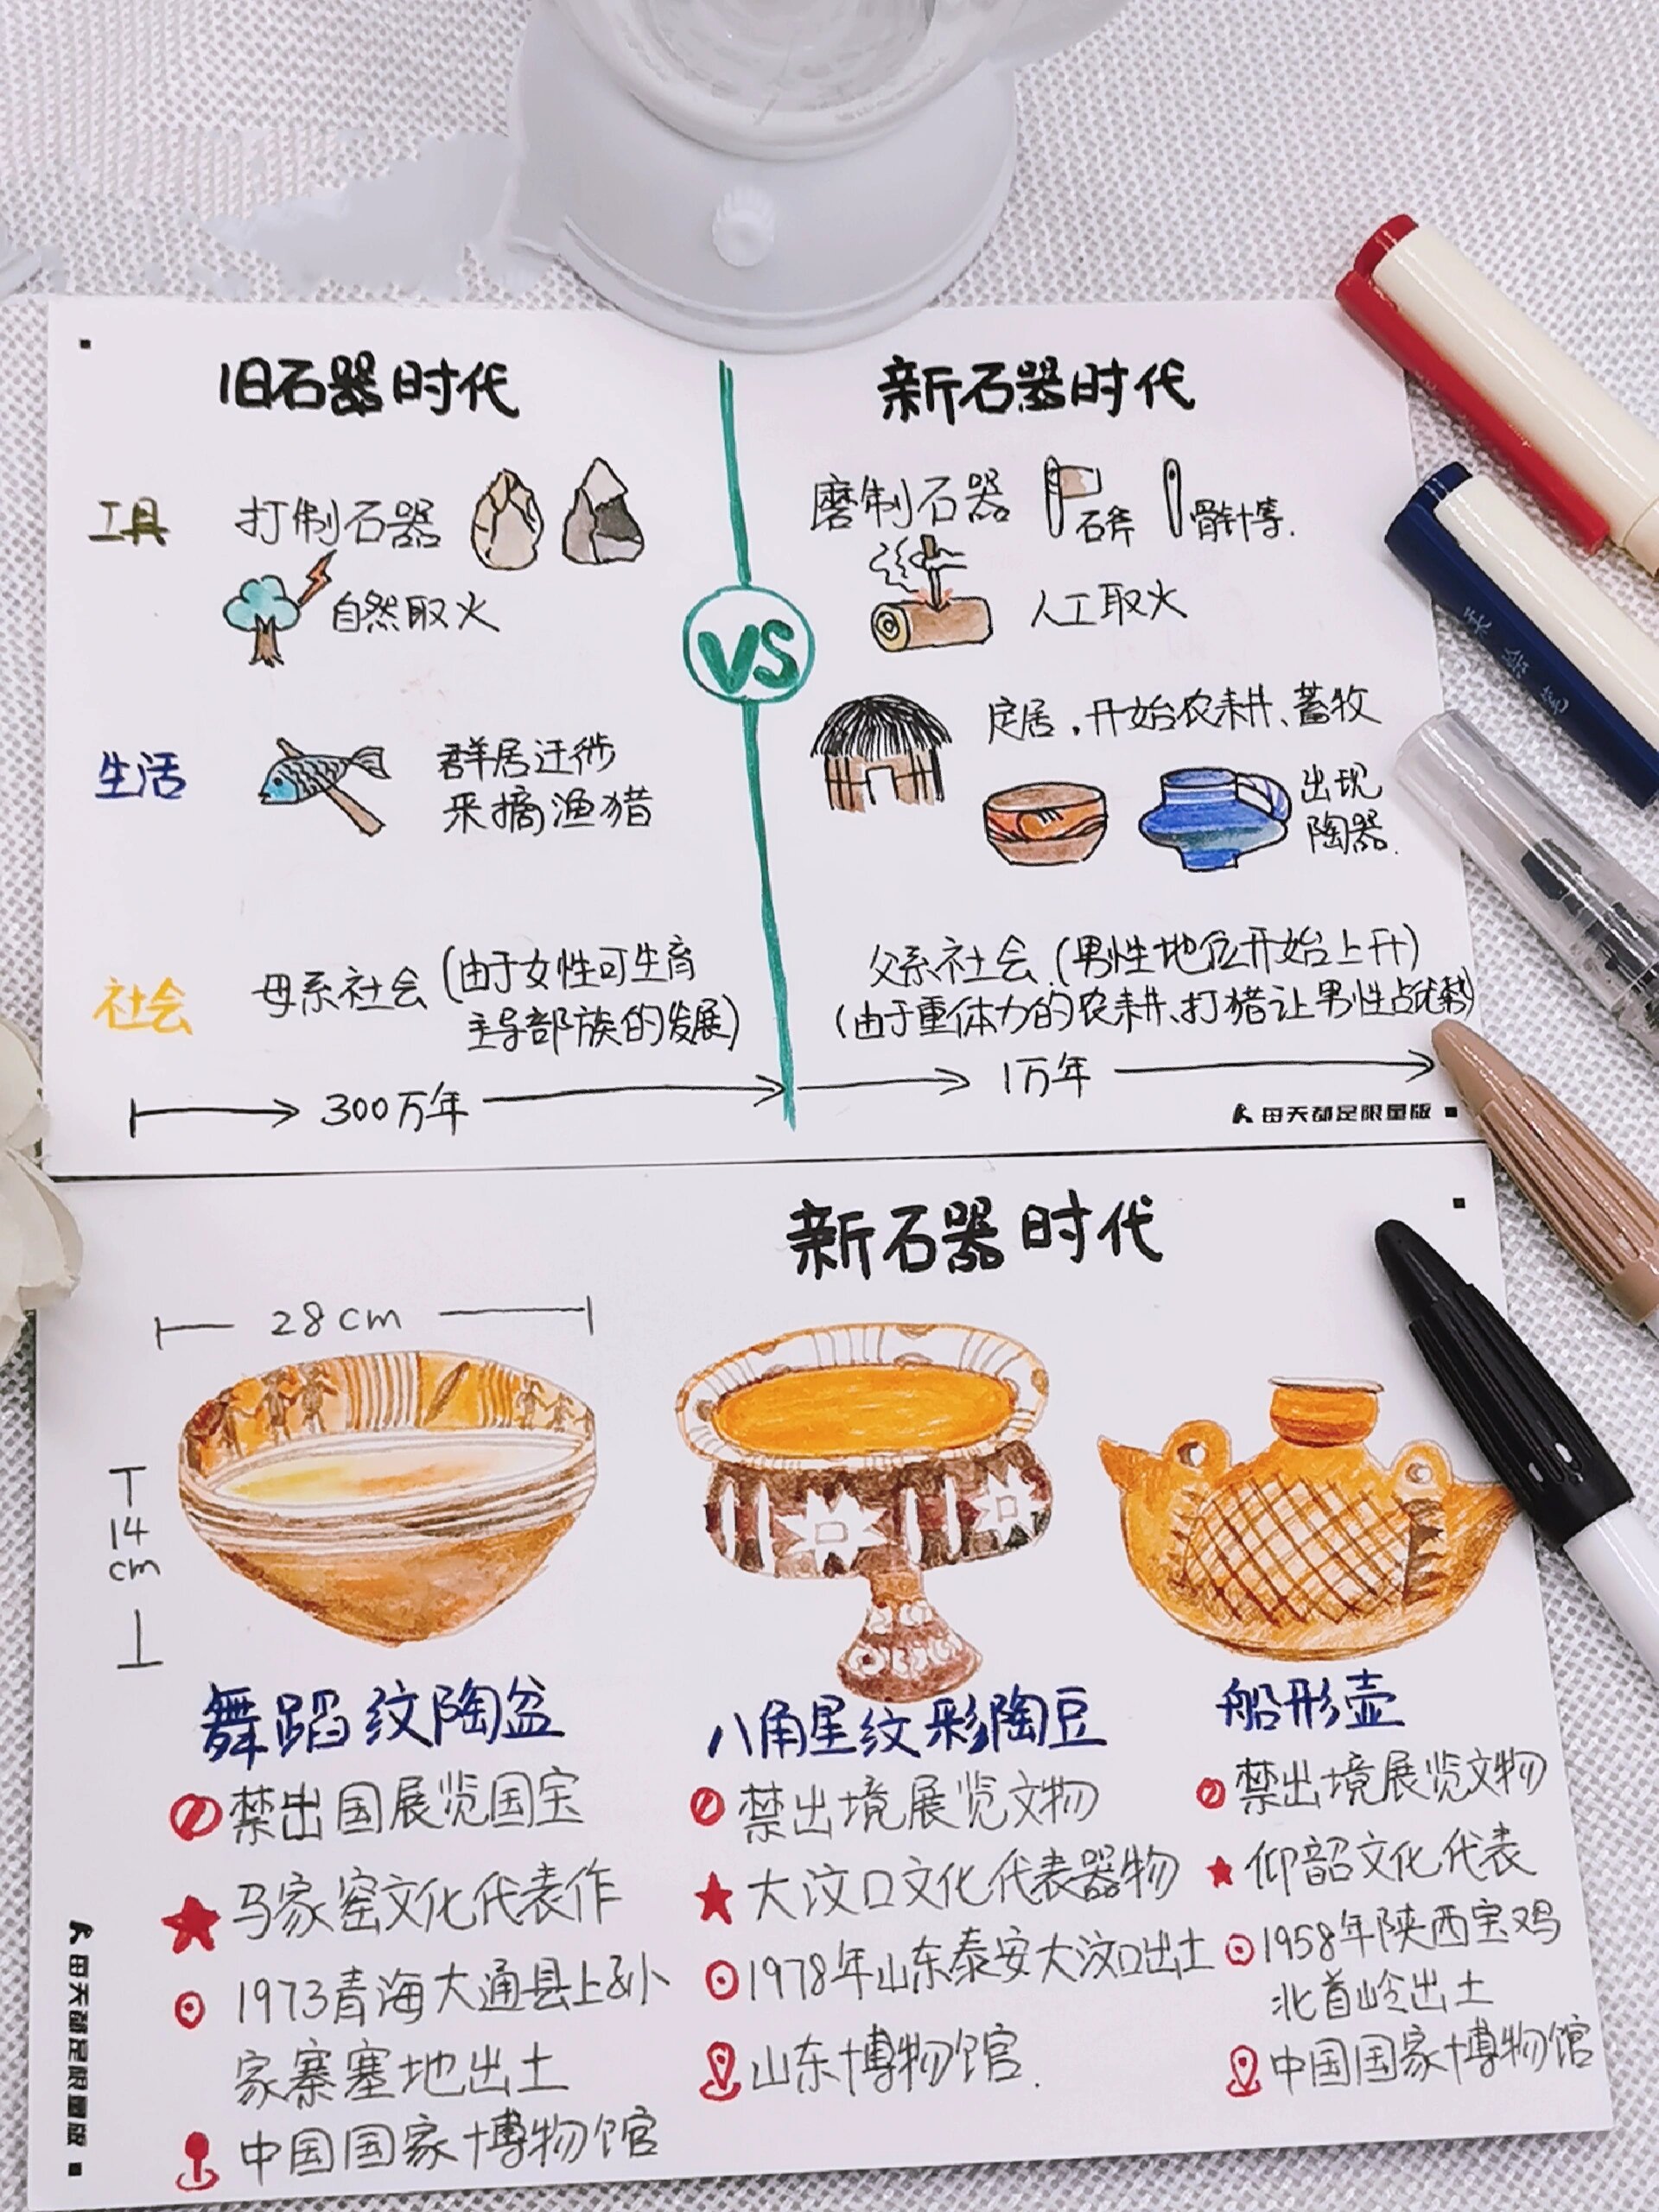 旧石器时代
新石器时代
工具
打制石器
自然取火
磨制石器
石斧
骨针等.
人工取火
VS
生活
群居迁徙
采摘渔猎
定居,开始农耕、蓄牧
出现
陶器.
社会
母系社会(由于女性可生育
主导部族的发展)
父系社会.(男性地位开始上升)
(由于重体力的农耕、打猎让男性占优势)
300万年
1万年
每天都是限量版
新石器时代
28cm
14
cm
舞蹈纹陶盆
禁出国展览国宝
马家窑文化代表作
1973青海大通县上孙
家寨墓地出土
中国国家博物馆
八角星纹彩陶豆
禁出境展览文物
大汶口文化代表器物
1978年山东泰安大汶口出土
山东博物馆.
船形壶
禁出境展览文物
仰韶文化代表
1958年陕西宝鸡
北首岭出土
中国国家博物馆
每天都是限量版